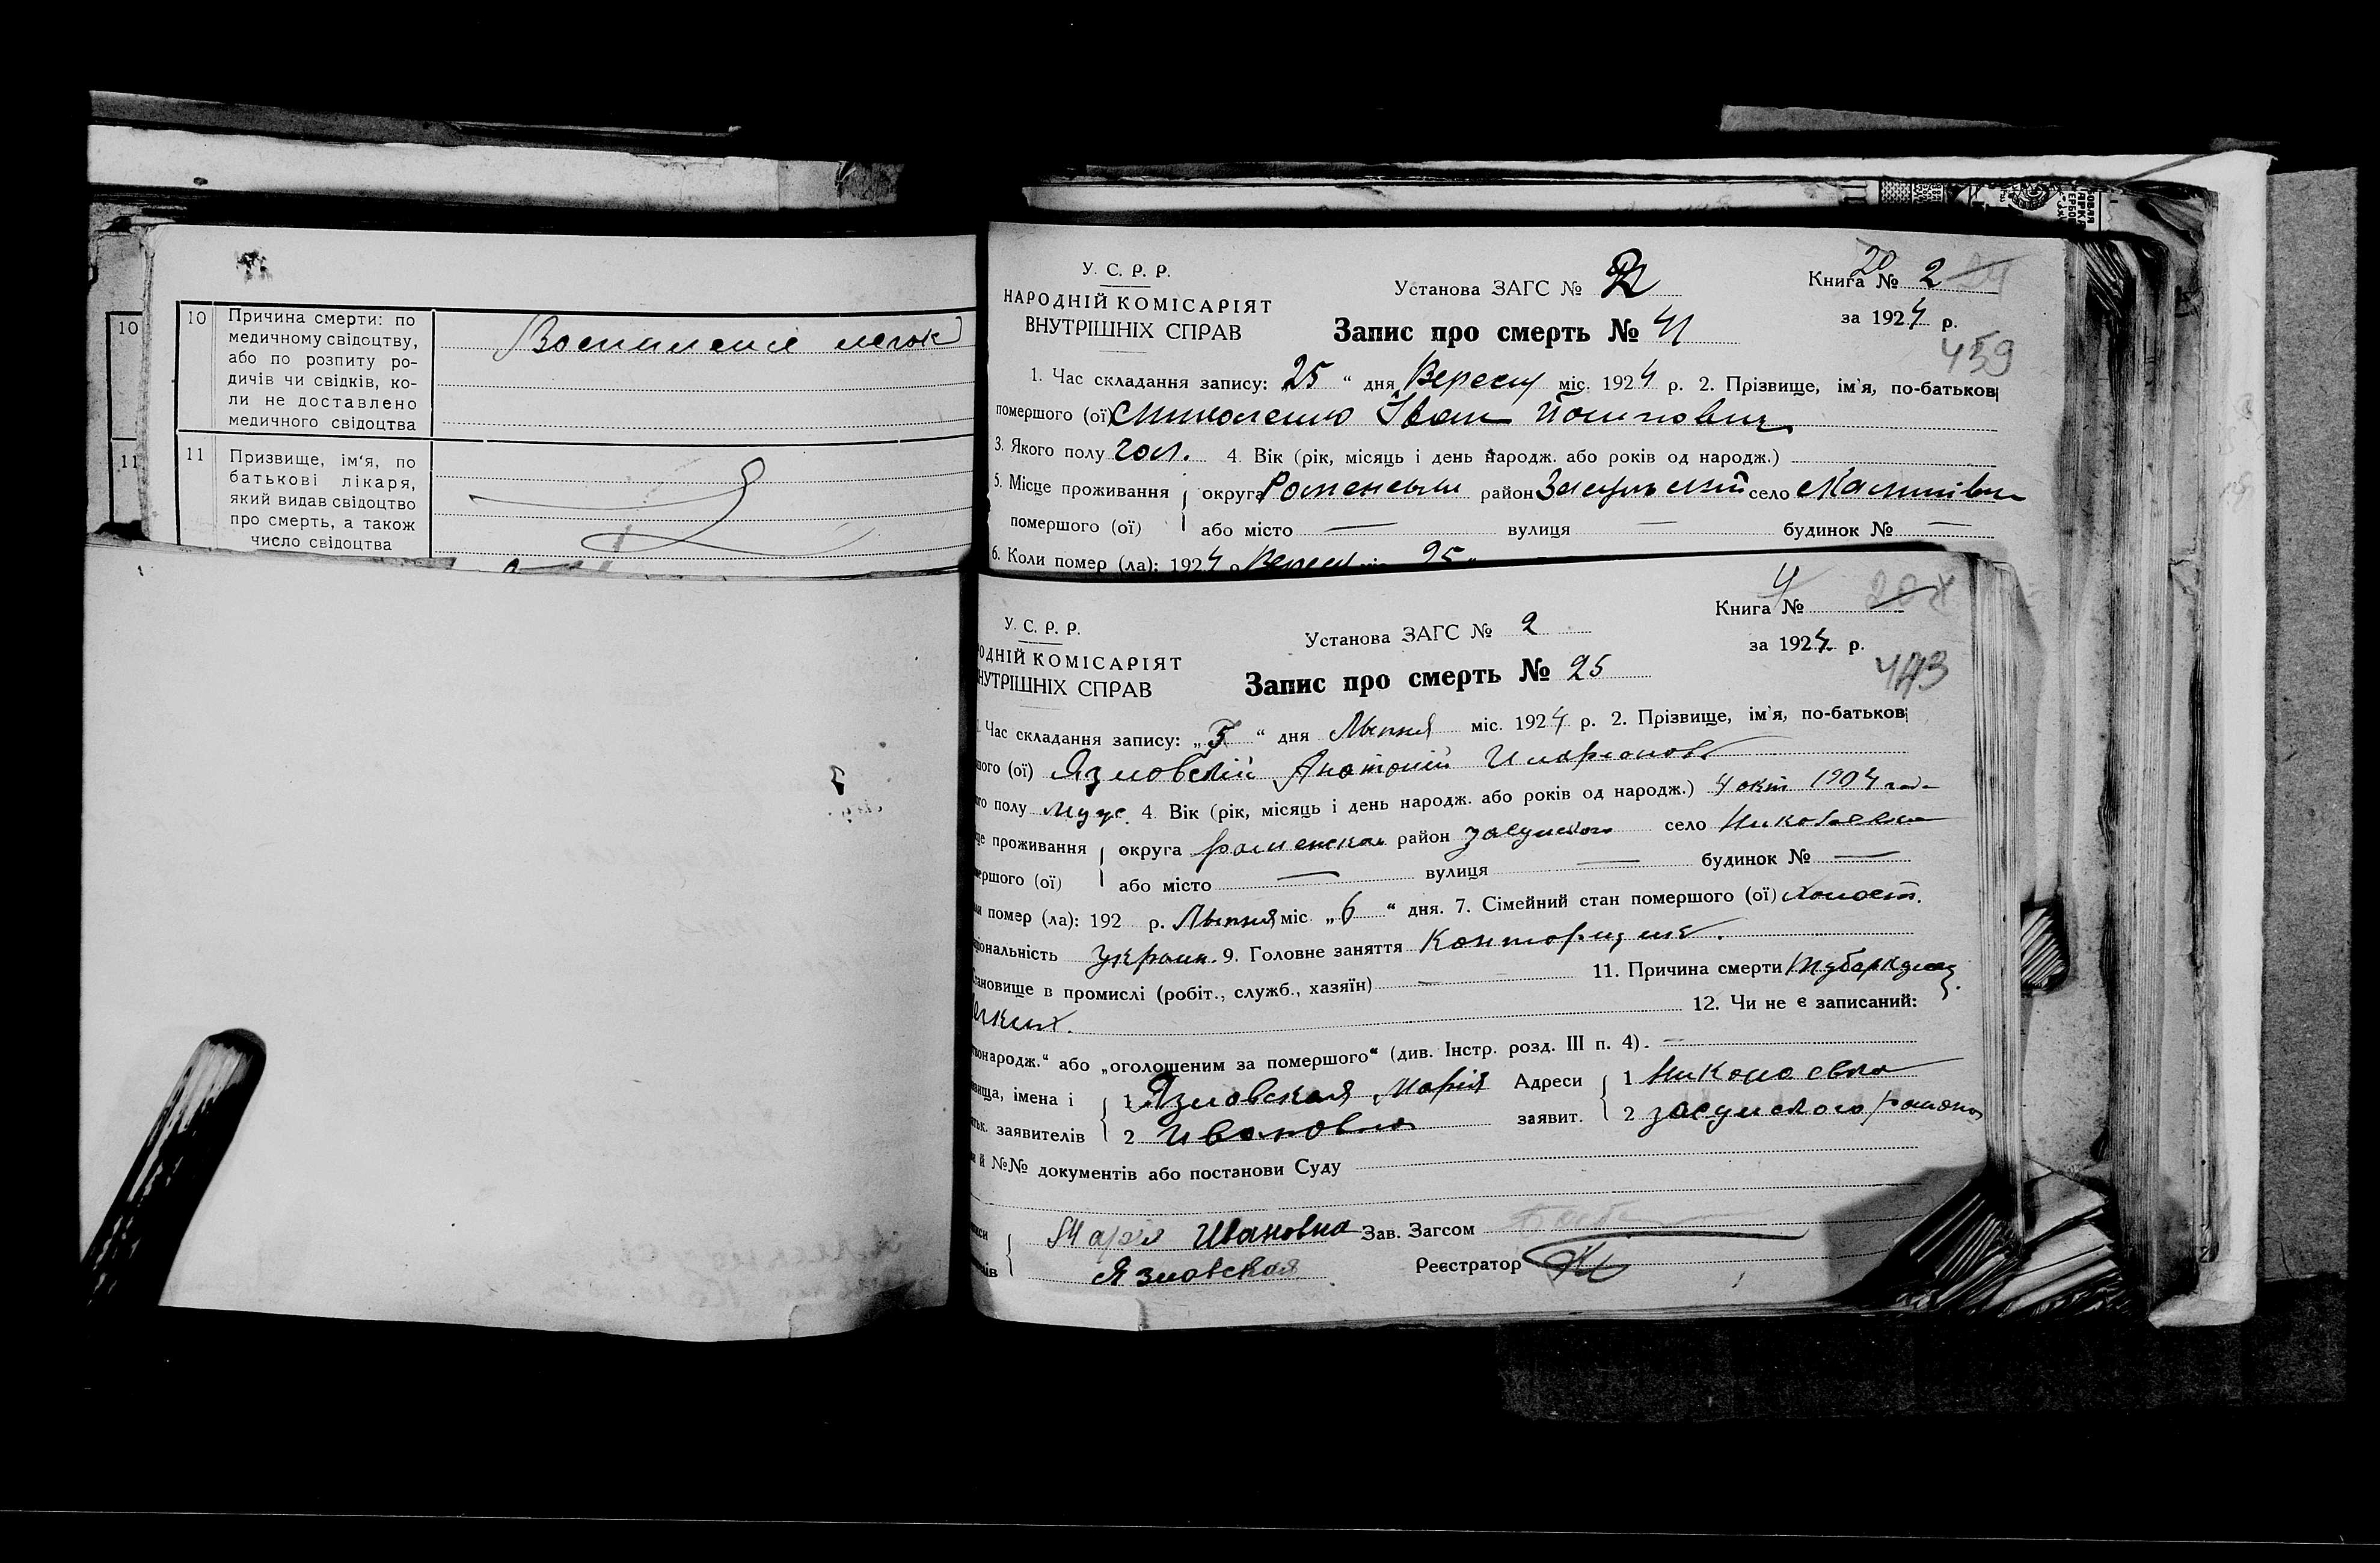 10
10 Причина смерти: по
медичному свідоцтву,
або по розпиту ро-
дичів чи свідків, ко-
ли не доставлено
медичного свідоцтва
Воспиление легок
11
11 Призвище, ім'я, по
батькові лікаря,
який видав свідоцтво
про смерть, а також
число свідоцтва
У. С. Р. Р.
НАРОДНІЙ КОМІСАРІЯТ
ВНУТРІШНІХ СПРАВ
Установа ЗАГС №
Книга № 2
20
Запис про смерть № 41
за 1924 р.
459
1. Час складання запису: 25 " дня Вересня міс. 1924 р. 2. Прізвище, ім'я, по-батькові
помершого (ої) Іван
3. Якого полу чол. 4. Вік (рік, місяць і день народж. або років од народж.)
5. Місце проживання округа Роменськи район Засульский село
помершого (ої) або місто — вулиця — будинок № —
6. Коли помер (ла): 1924 р. Вересня 25 "
У. С. Р. Р.
ОДНІЙ КОМІСАРІЯТ
НУТРІШНІХ СПРАВ
Установа ЗАГС № 2
Книга № 4
Запис про смерть № 25
за 1924 р.
Час складання запису: „ " дня Липня міс. 1924 р. 2. Прізвище, ім'я, по-батькові
шого (ої) Язловский Анатоний Иларионов
го полу муж. 4. Вік (рік, місяць і день народж. або років од народж.) 4 окт 1904 года
це проживання округа роменская район засульского село Николаевка
ершого (ої) або місто — вулиця — будинок № —
и помер (ла): 192 р. Липня міс „6 " дня. 7. Сімейний стан помершого (ої) холост.
ціональність украин. 9. Головне заняття Конторщик.
тановище в промислі (робіт., служб., хазяїн) — 11. Причина смерти туберкулез
легких. 12. Чи не є записаний:
вонародж." або „оголошеним за помершого" (див. Інстр. розд. III п. 4). —
вища, імена і 1 Язловская Мария Адреси 1 Николаевка
тьк. заявителів 2 Ивановна заявит. 2 засульского района
а й №№ документів або постанови Суду
Мария Ивановна Зав. Загсом
Язловская Реєстратор